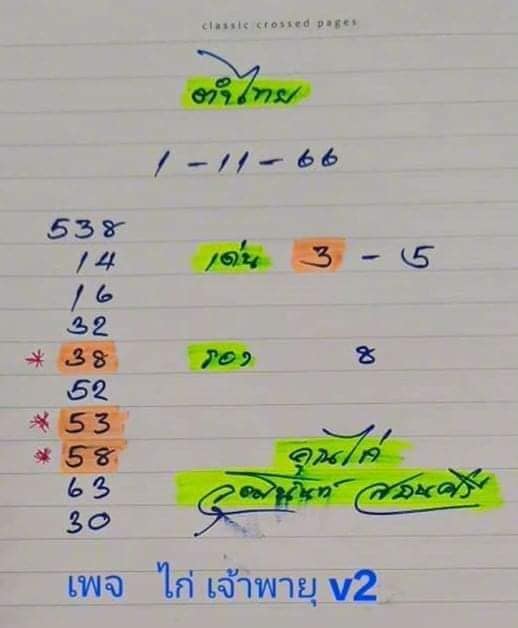 classic crossed pages
1 - 11 - 66
538
14 เด่น 3 - 5
16
32
* 38 รอง 8
52
* 53
* 58 คุณไก่
63
30
เพจ ไก่ เจ้าพายุ v2